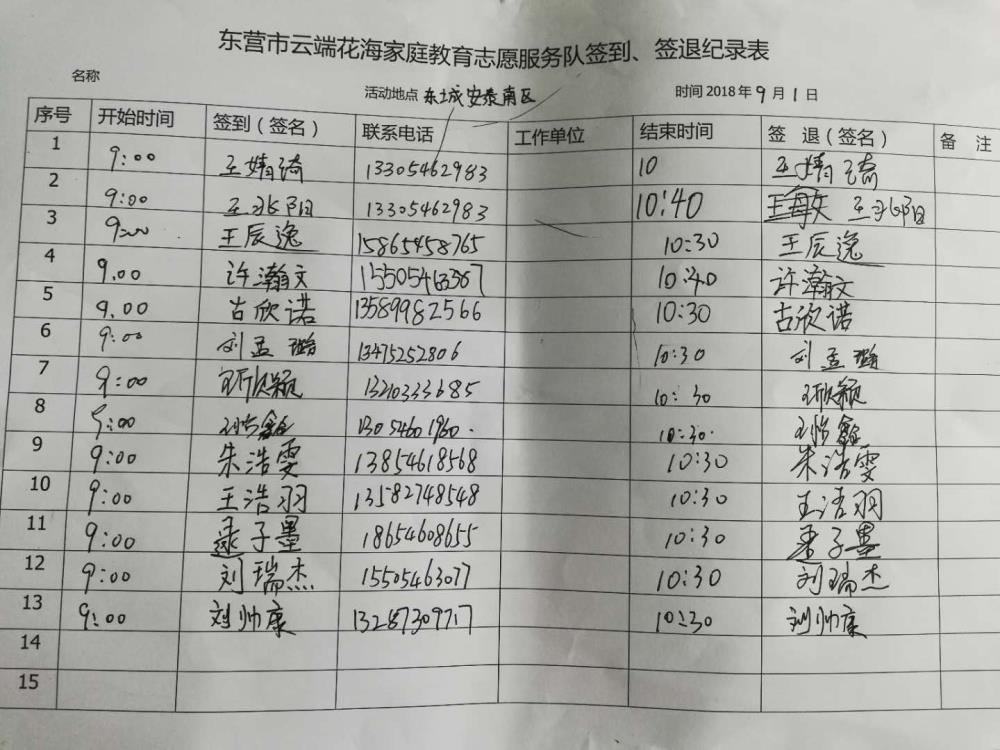 东营市云端花海家庭教育志愿服务队签到、签退纪录表
名称 活动地点 东城安泰南区 时间 2018年9月1日
序号 开始时间 签到（签名） 联系电话 工作单位 结束时间 签 退（签名） 备 注
1 9:00 王婧琦 13305462983 10 王婧琦
2 9:00 王兆阳 13305462983 10:40 王兆阳
3 9:00 王辰逸 15865458765 10:30 王辰逸
4 9.00 许瀚文 15505463367 10:40 许瀚文
5 9.00 古欣诺 13589982566 10:30 古欣诺
6 9:00 刘孟璐 13475252806 10:30 刘孟璐
7 9:00 13210333685 10:30
8 9:00 13054601960. 10:30.
9 9:00 朱浩雯 13854618568 10:30 朱浩雯
10 9:00 王浩羽 13582748548 10:30 王浩羽
11 9:00 逯子墨 18654608655 10:30 逯子墨
12 9:00 刘瑞杰 15505463077 10:30 刘瑞杰
13 9:00 刘帅康 13287309717 10:30 刘帅康
14
15